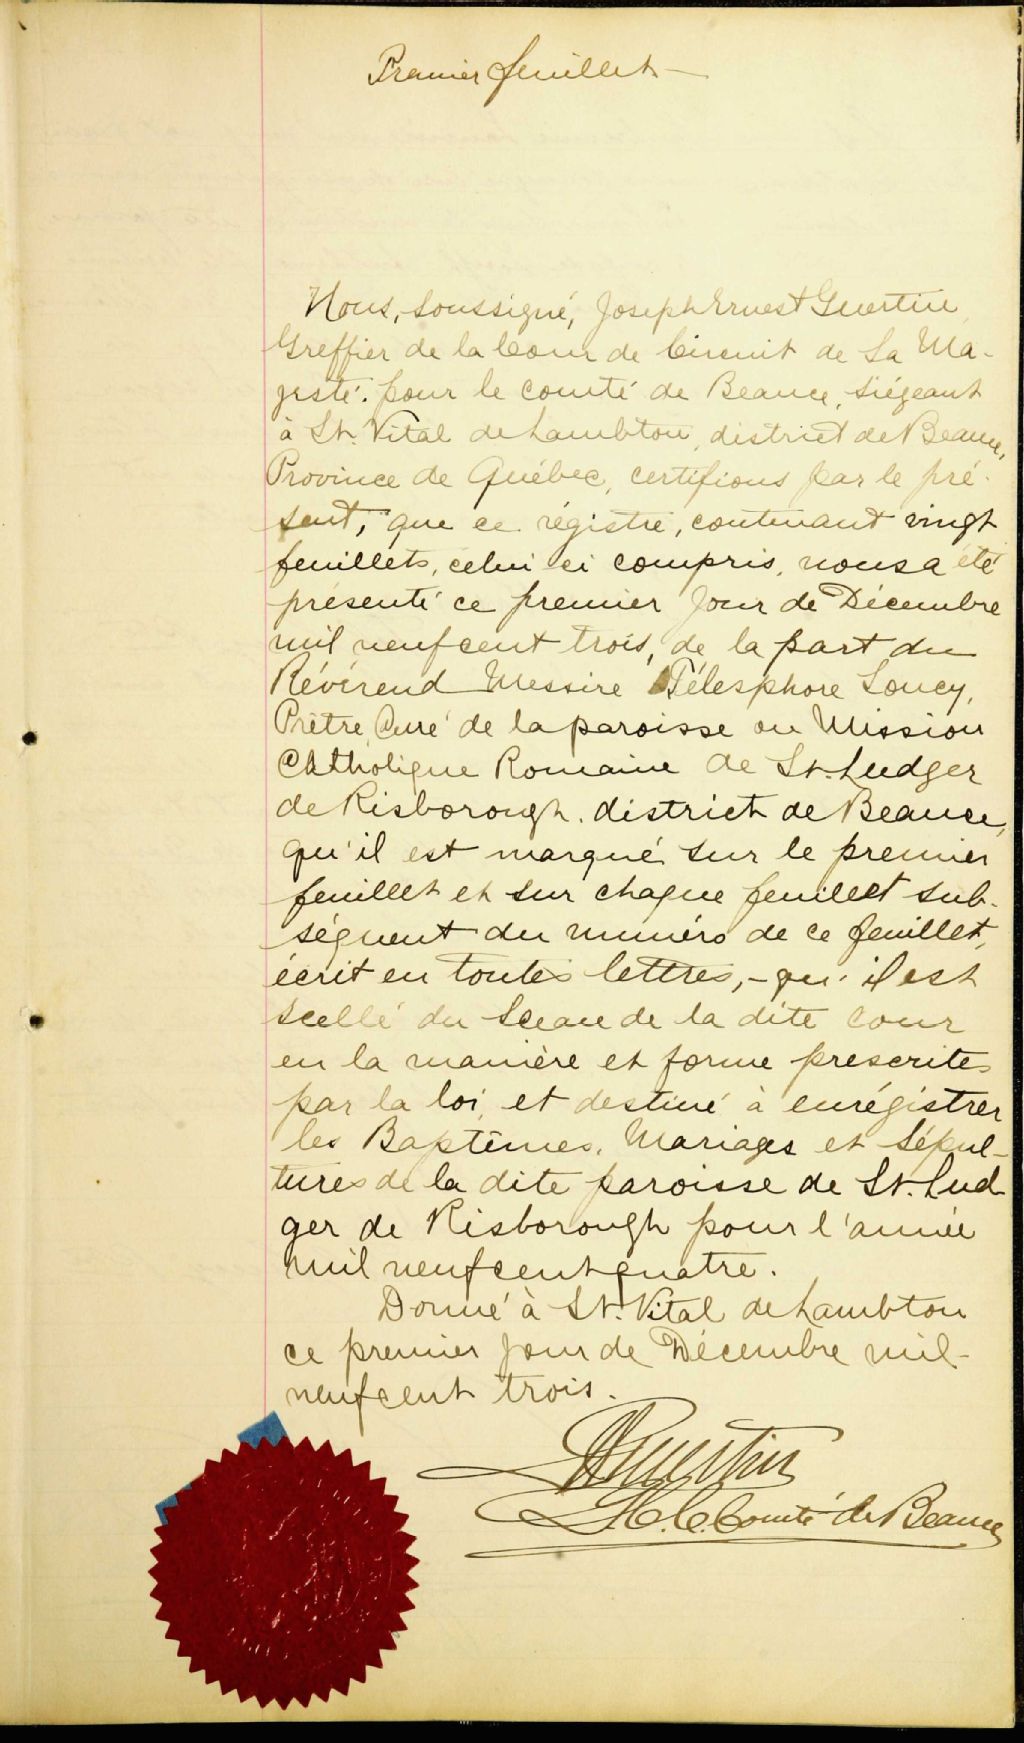 Premier feuillet
Nous, soussigné, Joseph Ernest Guertin,
Greffier de la Cour de Circuit de Sa Ma-
jesté. pour le comté de Beauce, siégeant
à St. Vital de Lambton, district de Beauce,
Province de Québec, certifions par le pré-
sent, que ce régistre, contenant vingt
feuillets, celui ci compris, nous a été
présenté ce premier jour de Décembre
mil neuf cent trois, de la part du
Révérend Messire Télesphore Soucy,
Prêtre, Curé de la paroisse ou Mission
Catholique Romaine de St. Ludger
de Risborough. district de Beauce,
qu'il est marqué sur le premier
feuillet et sur chaque feuillet sub-
séquent du numéro de ce feuillet,
écrit en toutes lettres, - qu'il est
scellé du Sceau de la dite cour
en la manière et forme prescrites
par la loi, et destiné à enrégistrer
les Baptêmes, Mariages et Sépul-
tures de la dite paroisse de St. Lud-
ger de Risborough pour l'année
mil neuf cent quatre.
Donné à St. Vital de Lambton
ce premier jour de Décembre mil-
neuf cent trois.
Guertin
C. C. Comté de Beauce